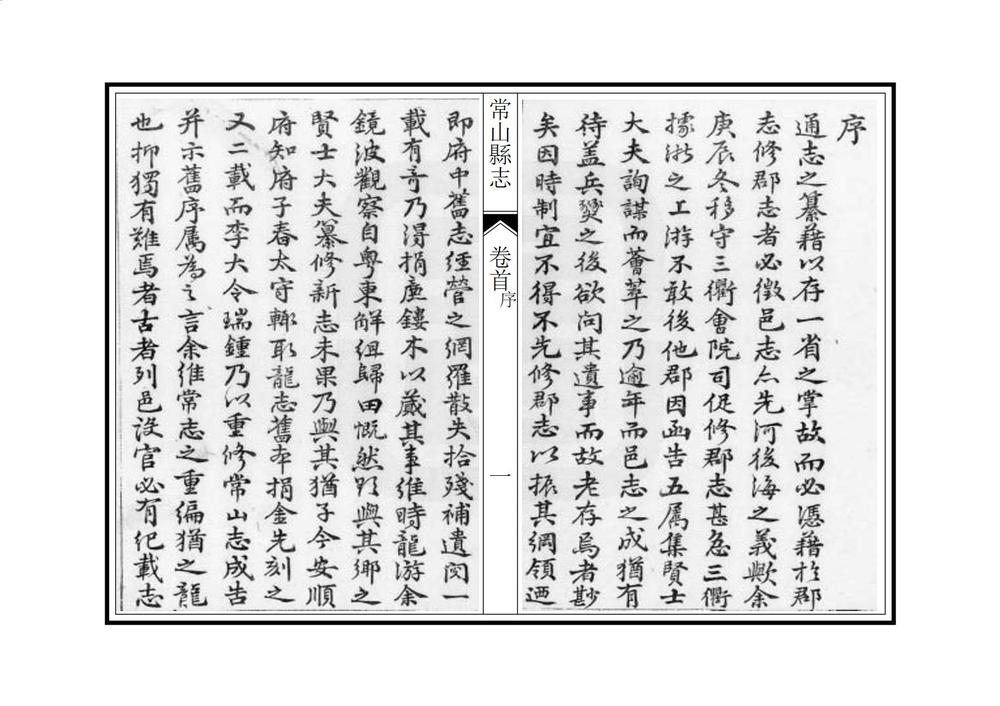 序
通志之纂藉以存一省之掌故而必憑藉於郡
志修郡志者必徵邑志亦先河後海之義歟余
庚辰冬移守三衢會院司促修郡志甚急三衢
據浙之上游不敢後他郡因函告五属集賢士
大夫詢謀而薈萃之乃逾年而邑志之成猶有
待盖兵燹之後欲问其遺事而故老存焉者尠
矣因時制宜不得不先修郡志以振其綱領迺
常山縣志
卷首
序
一
即府中舊志經營之網羅散失拾殘補遺閱一
載有奇乃得捐廉鏤木以蕆其事維時龍游余
鏡波觀察自粤東解组歸田慨然欲與其鄉之
賢士大夫纂修新志未果乃與其猶子今安順
府知府子春太守輙取龍志舊本捐金先刻之
又二載而李大令瑞鍾乃以重修常山志成告
并示舊序属為之言余維常志之重編猶之龍
也抑獨有難焉者古者列邑设官必有纪載志